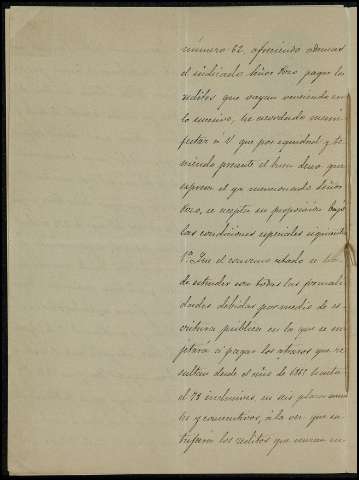 número 62, ofreciendo ademas
el indicado Señor Pozo pagar los
reditos que vayan venciendo en
lo sucesivo, he acordado mani-
festar a V. que por equidad y te-
niendo presente el buen deseo que
expresa el ya mencionado Señor
Pozo, se acepta su proposicion bajo
las condiciones especiales siguientes
1ª Que el convenio citado se ha
de estender con todas las formali-
dades debidas por medio de es-
critura publica en la que se com-
prometerá á pagar los atrasos que re-
sultan desde el año de 1861 hasta
el 73 inclusives, en seis plazos anua-
les y consecutivos, á la vez que sa-
tisfará los reditos que venzan en